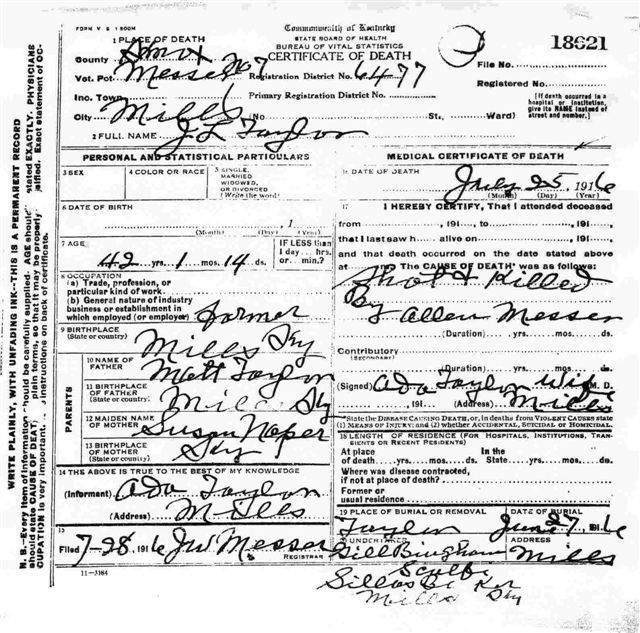 FORM V S 1 500M
Commonwealth of Kentucky
STATE BOARD OF HEALTH
BUREAU OF VITAL STATISTICS
CERTIFICATE OF DEATH
1 PLACE OF DEATH
County Knox
Vot. Pct. Messer No 7
Registration District No. 6477
Inc. Town
Primary Registration District No.
City Mills (No. St., Ward)
2 FULL NAME J L Taylor
File No. 18621
Registered No.
[If death occurred in a hospital or institution, give its NAME instead of street and number.]
PERSONAL AND STATISTICAL PARTICULARS
3 SEX
4 COLOR OR RACE
5 SINGLE, MARRIED WIDOWED, OR DIVORCED (Write the word)
6 DATE OF BIRTH
(Month) (Day) , 1 (Year)
7 AGE
42 yrs. 1 mos. 14 ds.
IF LESS than 1 day... hrs. or... min.?
8 OCCUPATION
(a) Trade, profession, or particular kind of work
(b) General nature of industry business or establishment in which employed (or employer) farmer
9 BIRTHPLACE (State or country) Mills Ky
PARENTS
10 NAME OF FATHER Matt Taylor
11 BIRTHPLACE OF FATHER (State or country) Mills Ky
12 MAIDEN NAME OF MOTHER Susan Noper
13 BIRTHPLACE OF MOTHER (State or country) Ky
14 THE ABOVE IS TRUE TO THE BEST OF MY KNOWLEDGE
(Informant) Ada Taylor
(Address) Mills
15
Filed 7-28, 1916 JW Messer
REGISTRAR
11-3184
MEDICAL CERTIFICATE OF DEATH
16 DATE OF DEATH
July 25, 1916
(Month) (Day) (Year)
17 I HEREBY CERTIFY, That I attended deceased
from , 191 , to , 191 ,
that I last saw h alive on , 191 ,
and that death occurred on the date stated above
at m. The CAUSE OF DEATH* was as follows:
Shot & Killed
By Allen Messer
(Duration) yrs. mos. ds.
Contributory (SECONDARY)
(Duration) yrs. mos. ds.
(Signed) Ada Taylor Wife M. D.
, 191 (Address) Mills
*State the DISEASE CAUSING DEATH, or, in deaths from VIOLENT CAUSES state (1) MEANS OF INJURY; and (2) whether ACCIDENTAL, SUICIDAL or HOMICIDAL.
18 LENGTH OF RESIDENCE (FOR HOSPITALS, INSTITUTIONS, TRANSIENTS OR RECENT RESIDENTS)
At place of death yrs. mos. ds. In the State yrs. mos. ds.
Where was disease contracted, if not at place of death?
Former or usual residence
19 PLACE OF BURIAL OR REMOVAL Taylor
DATE OF BURIAL June 27, 1916
20 UNDERTAKER Gill Bingham
ADDRESS Mills
Mills Ky
WRITE PLAINLY, WITH UNFADING INK---THIS IS A PERMANENT RECORD
N. B.--Every item of information should be carefully supplied. AGE should stated EXACTLY. PHYSICIANS
should state CAUSE OF DEATH plain terms, so that it may be properly Exact statement of OC-
CUPATION is very important. instructions on back of certificate.